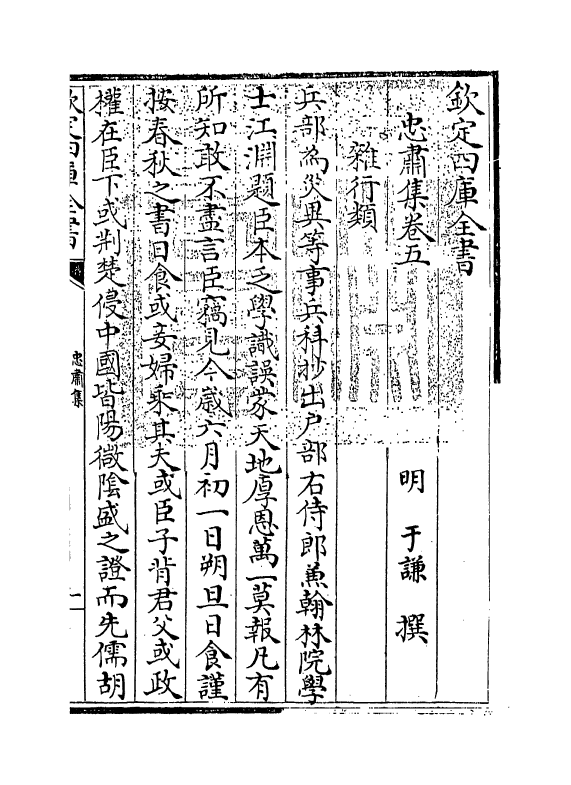 欽定四庫全書
忠肅集卷五
明 于謙 撰
雜行類
兵部為災異等事兵科抄出户部右侍郎兼翰林院學
士江淵題臣本乏學識誤蒙天地厚恩萬一莫報凡有
所知敢不盡言臣竊見今歲六月初一日朔旦日食謹
按春秋之書日食或妾婦乘其夫或臣子背君父或政
權在臣下或荆楚侵中國皆陽微隂盛之證而先儒胡
欽定四庫全書
忠肅集
一